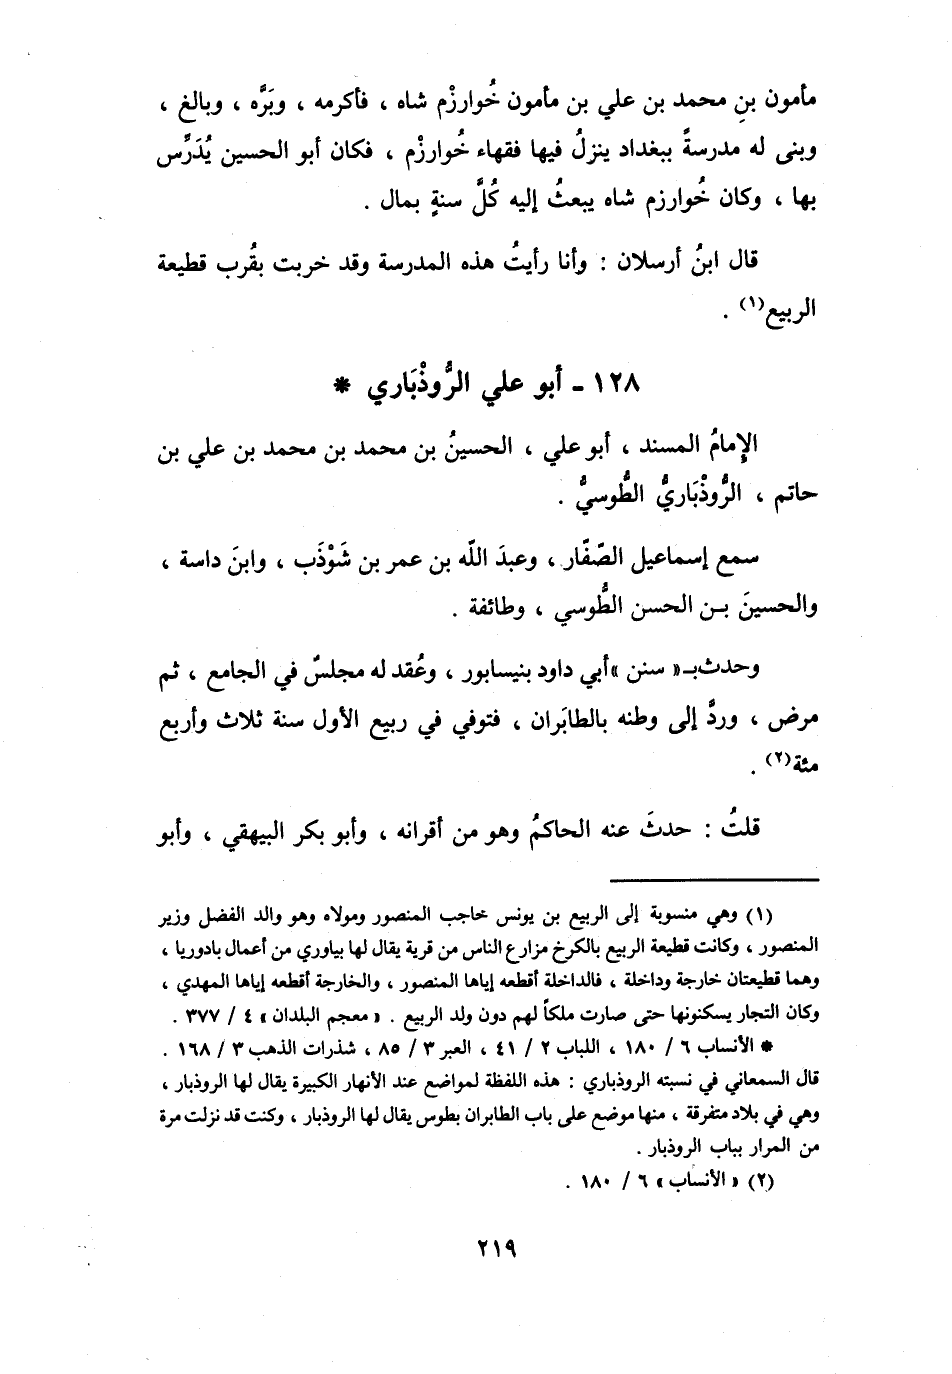 مأمون بنِ محمد بن علي بن مأمون خُوارزْم شاه ، فأكرمه ، وبَرَّه ، وبالغ ،
وبنى له مدرسةً ببغداد ينزلُ فيها فقهاء خُوارزْم ، فكان أبو الحسين يُدَرِّس
بها ، وكان خُوارزم شاه يبعثُ إليه كُلَّ سنةٍ بمال .
قال ابنُ أرسلان : وأنا رأيتُ هذه المدرسة وقد خربت بقُرب قطيعة
الربيع(١) .
١٢٨ - أبو علي الرُّوذْبَاري *
الإِمامُ المسند ، أبو علي ، الحسينُ بن محمد بن محمد بن علي بن
حاتم ، الرُّوذْبَاريُّ الطُّوسيُّ .
سمع إسماعيل الصَّفَّار ، وعبدَ اللّه بن عمر بن شَوْذَب ، وابنَ داسة ،
والحسينَ بن الحسن الطُّوسي ، وطائفة .
وحدث بـ« سنن »أبي داود بنيسابور ، وعُقد له مجلسٌ في الجامع ، ثم
مرض ، وردَّ إلى وطنه بالطابَران ، فتوفي في ربيع الأول سنة ثلاث وأربع
مئة(٢) .
قلتُ : حدثَ عنه الحاكمُ وهو من أقرانه ، وأبو بكر البيهقي ، وأبو
(١) وهي منسوبة إلى الربيع بن يونس حاجب المنصور ومولاه وهو والد الفضل وزير
المنصور ، وكانت قطيعة الربيع بالكرخ مزارع الناس من قرية يقال لها بياوري من أعمال بادوريا ،
وهما قطيعتان خارجة وداخلة ، فالداخلة أقطعه إياها المنصور ، والخارجة أقطعه إياها المهدي ،
وكان التجار يسكنونها حتى صارت ملكاً لهم دون ولد الربيع . « معجم البلدان » ٤ / ٣٧٧ .
* الأنساب ٦ / ١٨٠ ، اللباب ٢ / ٤١ ، العبر ٣ / ٨٥ ، شذرات الذهب ٣ / ١٦٨ .
قال السمعاني في نسبته الروذباري : هذه اللفظة لمواضع عند الأنهار الكبيرة يقال لها الروذبار ،
وهي في بلاد متفرقة ، منها موضع على باب الطابران بطوس يقال لها الروذبار ، وكنت قد نزلت مرة
من المرار بباب الروذبار .
(٢) « الأنساب » ٦ / ١٨٠ .
٢١٩